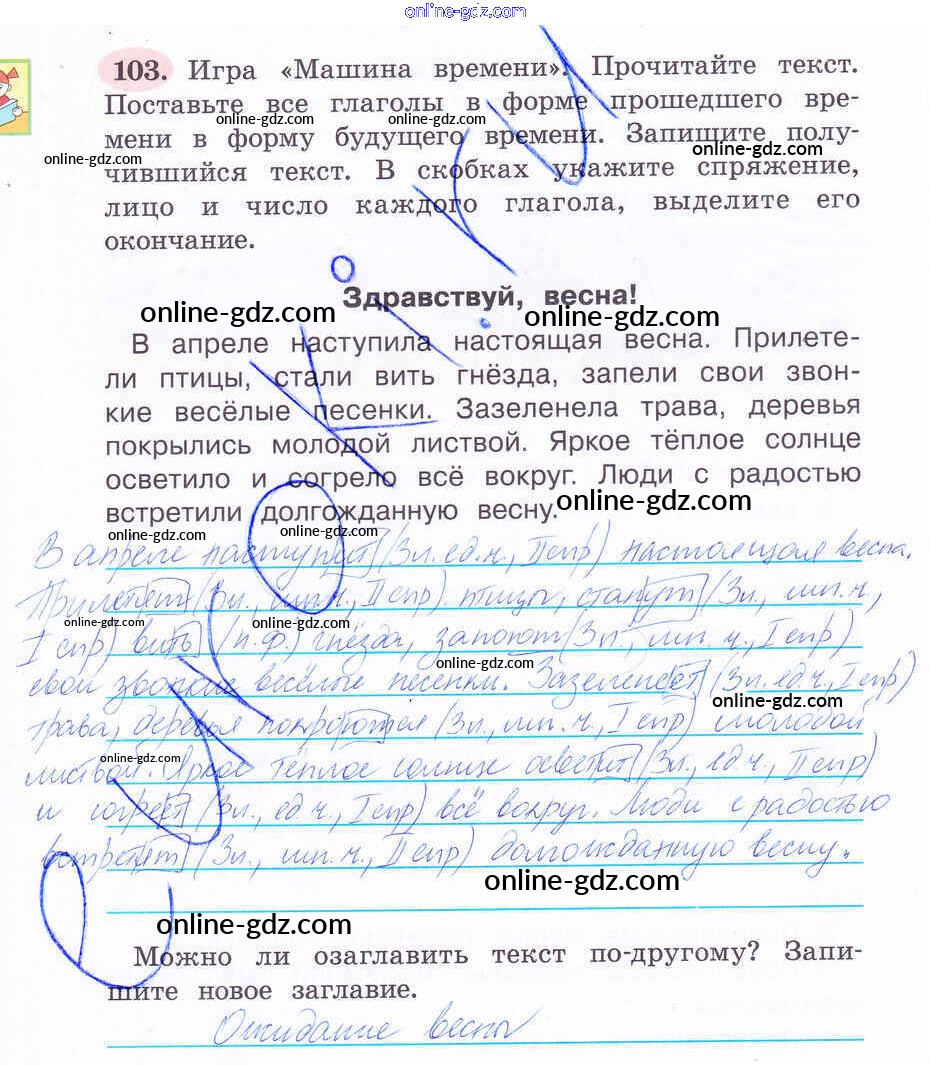 online-gdz.com
103. Игра «Машина времени». Прочитайте текст.
Поставьте все глаголы в форме прошедшего вре-
online-gdz.com online-gdz.com
мени в форму будущего времени. Запишите полу-
online-gdz.com online-gdz.com
чившийся текст. В скобках укажите спряжение,
лицо и число каждого глагола, выделите его
окончание.
Здравствуй, весна!
online-gdz.com online-gdz.com
В апреле наступила настоящая весна. Прилете-
ли птицы, стали вить гнёзда, запели свои звон-
кие весёлые песенки. Зазеленела трава, деревья
покрылись молодой листвой. Яркое тёплое солнце
осветило и согрело всё вокруг. Люди с радостью
online-gdz.com
встретили долгожданную весну.
online-gdz.com online-gdz.com
В апреле наступит (3л. ед.ч., II спр) настоящая весна.
Прилетят (3л., мн.ч., II спр) птицы, станут (3л., мн.ч,
online-gdz.com online-gdz.com
I спр) вить (н.ф.) гнёзда, запоют (3л., мн.ч., I спр)
online-gdz.com
свои звонкие весёлые песенки. Зазеленеет (3л. ед.ч, I спр)
online-gdz.com
трава, деревья покроются (3л., мн.ч, I спр) молодой
online-gdz.com
листвой. Яркое теплое солнце осветит (3л., ед.ч., II спр)
и согреет (3л., ед.ч., I спр) всё вокруг. Люди с радостью
встретят (3л., мн.ч., II спр) долгожданную весну.
online-gdz.com
online-gdz.com
Можно ли озаглавить текст по-другому? Запи-
шите новое заглавие.
Ожидание весны
online-gdz.com